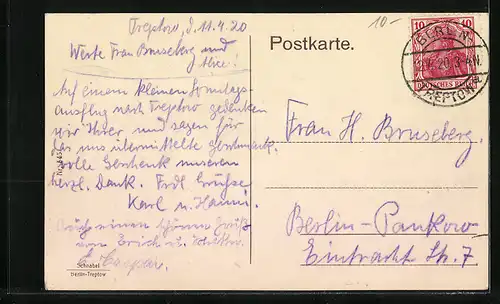 10-
Treptow, d. 11.4.20
Werte Frau Bruseberg und
Alice!
Auf einem kleinen Sonntags-
ausflug nach Treptow gedenken
wir Ihrer und sagen für
das uns übermittelte geschmack-
volle Geschenk unseren
herzl. Dank. Frdl. Grüße
Karl u. Hanni.
Auch einen schönen Gruß
von Erich u.
E. Caspar.
Schnabel
Berlin-Treptow
Postkarte.
10 10
DEUTSCHES REICH
BERLIN
TREPTOW
Frau H. Bruseberg.
Berlin-Pankow
Eintracht St. 7